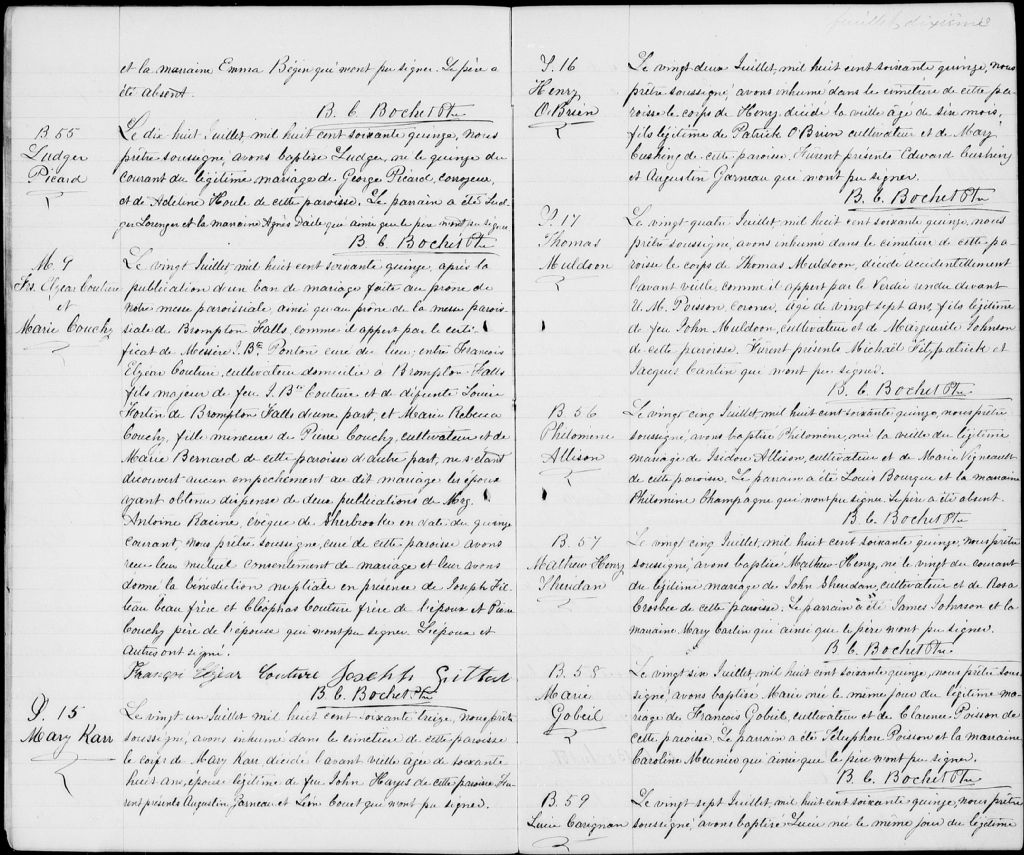 et la marraine Emma Bégin qui n'ont pu signer. Le père a
été absent.
B. C. Bochet Ptre
B 55
Ludger
Picard
Le dix huit Juillet mil huit cent soixante quinze, nous
prêtre soussigné, avons baptisé Ludger, né le quinze du
courant du légitime mariage de George Picard, conroyeur,
et de Adeline Houle de cette paroisse. Le parrain a été Lud-
ger Loranger et la marraine Agnès Daile qui ainsi que le père n'ont pu signer
B. C. Bochet Ptre
M. 9
Frs. Elzéar Couture
et
Marie Couchy
Le vingt Juillet mil huit cent soixante quinze, après la
publication d'un ban de mariage faite au prône de
notre messe paroissiale, ainsi qu'au prône de la messe parois-
siale de Brompton Falls, comme il appert par le certi-
ficat de Messire J. Bte Ponton curé du lieu; entre François
Elzéar Couture, cultivateur domicilié à Brompton Falls
fils majeur de feu J. Bte Couture et de défunte Louise
Fortin de Brompton Falls d'une part, et Marie Rebecca
Couchy, fille mineure de Pierre Couchy, cultivateur et de
Marie Bernard de cette paroisse d'autre part, ne s'étant
découvert aucun empêchement au dit mariage les époux
ayant obtenu dispense de deux publications de Mgr.
Antoine Racine, évêque de Sherbrooke en date du quinze
courant, nous prêtre soussigné, curé de cette paroisse avons
reçu leur mutuel consentement de mariage et leur avons
donné la bénédiction nuptiale en présence de Joseph Fil-
teau beau frère et Cléophas Couture frère de l'époux et Pierre
Couchy père de l'épouse qui n'ont pu signer. L'époux et
Autres ont signé.
François Elzéar Couture Joseph
B. C. Bochet Ptre
S. 15
Mary Karr
Le vingt un Juillet mil huit cent soixante treize, nous prêtre
soussigné, avons inhumé dans le cimetière de cette paroisse
le corps de Mary Karr décédée l'avant veille agée de soixante
huit ans, épouse légitime de feu John Hayes de cette paroisse Fu-
rent présents Augustin Garneau et Léon Couet qui n'ont pu signer.
feuillet dixième
S. 16
Henry
O'Brien
Le vingt deux Juillet, mil huit cent soixante quinze, nous
prêtre soussigné, avons inhumé dans le cimetière de cette pa-
roisse le corps de Henry décédé la veille âgé de six mois,
fils légitime de Patrick O'Brien cultivateur et de Mary
Cushing de cette paroisse. Furent présents Edward Cushing
et Augustin Garneau qui n'ont pu signer.
B. C. Bochet Ptre
S. 17
Thomas
Muldoon
Le vingt quatre Juillet mil huit cent soixante quinze, nous
prêtre soussigné, avons inhumé dans le cimetière de cette pa-
roisse le corps de Thomas Muldoon, décédé accidentellement
l'avant veille comme il appert par le Verdic rendu devant
U. M. Poisson, coroner, âgé de vingt sept ans, fils légitime
de feu John Muldoon, cultivateur et de Marguerite Johnson
de cette paroisse. Furent présents Michaël Fitzpatrick et
Jacques Cantin qui n'ont pu signer.
B. C. Bochet Ptre
B. 56
Philomène
Allison
Le vingt cinq Juillet, mil huit cent soixante quinze, nous prêtre
soussigné, avons baptisé Philomène, née la veille du légitime
mariage de Isidore Allison, cultivateur et de Marie Vigneault
de cette paroisse. Le parrain a été Louis Bourque et la marraine
Philomène Champagne qui n'ont pu signer. Le père a été absent.
B. C. Bochet Ptre
B. 57
Mathew Henry
Sheridan
Le vingt cinq Juillet, mil huit cent soixante quinze, nous prêtre
soussigné, avons baptisé Mathew Henry, né le vingt du courant
du légitime mariage de John Sheridan, cultivateur et de Rosa
Crosbee de cette paroisse. Le parrain a été James Johnson et la
marraine Mary Carlin qui ainsi que le père n'ont pu signer.
B. C. Bochet Ptre
B. 58
Marie
Gobeil
Le vingt six Juillet, mil huit cent soixante quinze, nous prêtre sous-
signé, avons baptisé Marie née le même jour du légitime ma-
riage de François Gobeil, cultivateur et de Clarence Poisson de
cette paroisse. Le parrain a été Télesphore Poisson et la marraine
Caroline Meunier qui ainsi que le père n'ont pu signer.
B. C. Bochet Ptre
B. 59
Lucie Carignan
Le vingt sept Juillet, mil huit cent soixante quinze, nous prêtre
soussigné, avons baptisé Lucie née le même jour du légitime